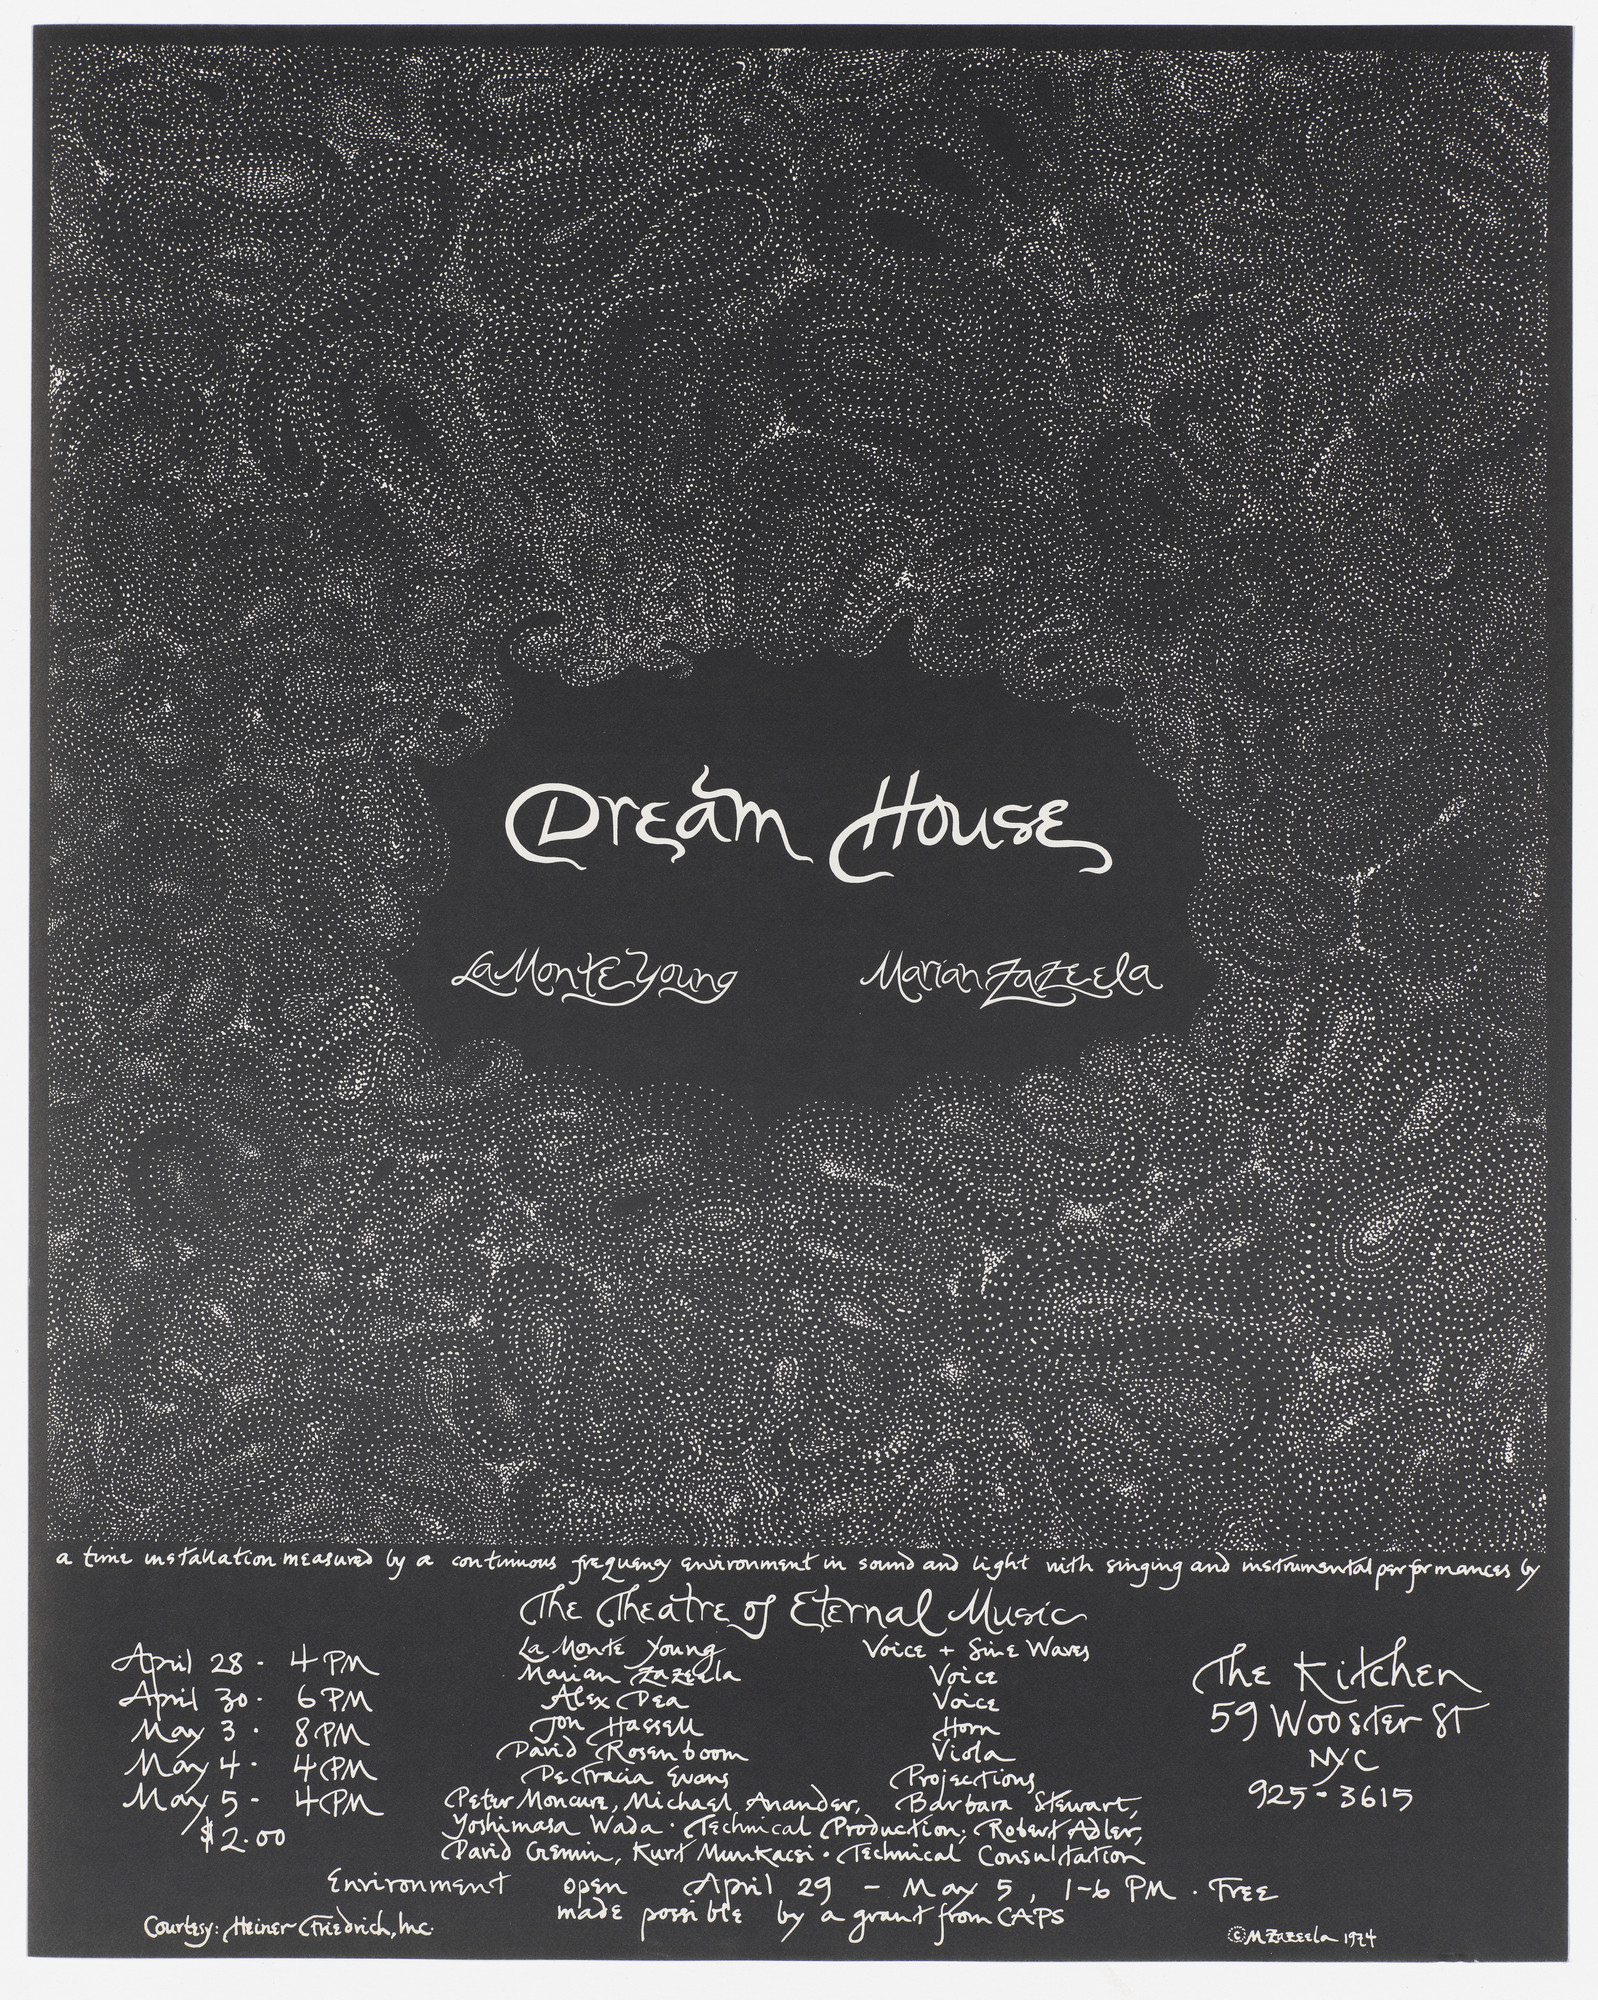 Dream House
La Monte Young Marian Zazeela
a time installation measured by a continuous frequency environment in sound and light with singing and instrumental performances by
The Theatre of Eternal Music
La Monte Young Voice + Sine Waves
Marian Zazeela Voice
Alex Dea Voice
Jon Hassell Horn
David Rosenboom Viola
De Fracia Evans Projections
Peter Moncure, Michael Anander, Barbara Stewart,
Yoshimasa Wada · Technical Production; Robert Adler,
David Gremin, Kurt Munkacsi · Technical Consultation
April 28 - 4 PM
April 30 · 6 PM
May 3 · 8 PM
May 4 · 4 PM
May 5 - 4 PM
$2.00
The Kitchen
59 Wooster St
NYC
925-3615
Environment open April 29 - May 5, 1-6 PM · Free
made possible by a grant from CAPS
Courtesy: Heiner Friedrich, Inc.
© M Zazeela 1974